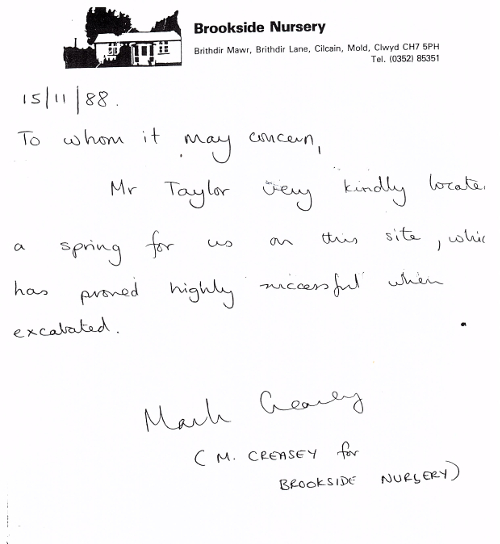 Brookside Nursery
Brithdir Mawr, Brithdir Lane, Cilcain, Mold, Clwyd CH7 5PH
Tel. (0352) 85351
15/11/88.
To whom it may concern,
Mr Taylor very kindly locate
a spring for us on this site, whic
has proved highly successful when
excabated.
Mark Creasey
(M. CREASEY for
BROOKSIDE NURSERY)